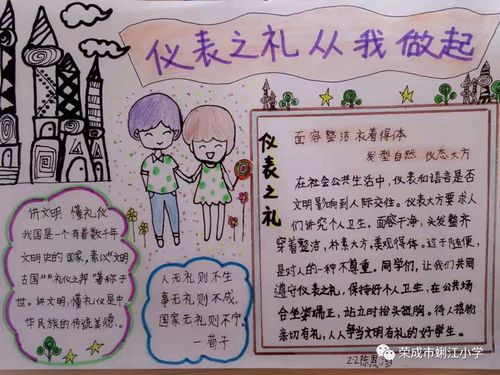 仪表之礼从我做起
仪表之礼
面容整洁 衣着得体
发型自然 仪态大方
在社会公共生活中，仪表和语言是否
文明影响到人际交往。仪表大方要求人
们讲究个人卫生，面容干净，头发整齐
穿着整洁，朴素大方，美观得体。过于随便，
是对人的一种不尊重。同学们，让我们共同
遵守仪表之礼，保持好个人卫生，在公共场
合坐姿端正，站立时抬头挺胸。待人接物
亲切有礼，人人争当文明有礼的好学生。
讲文明 懂礼仪
我国是一个有着数千年
文明史的国家，素以“文明
古国”“礼仪之邦”著称于
世。讲文明，懂礼仪是中
华民族的传统美德。
人无礼则不生
事无礼则不成，
国家无礼则不宁。
—荀子
2.2陈思
荣成市蜊江小学